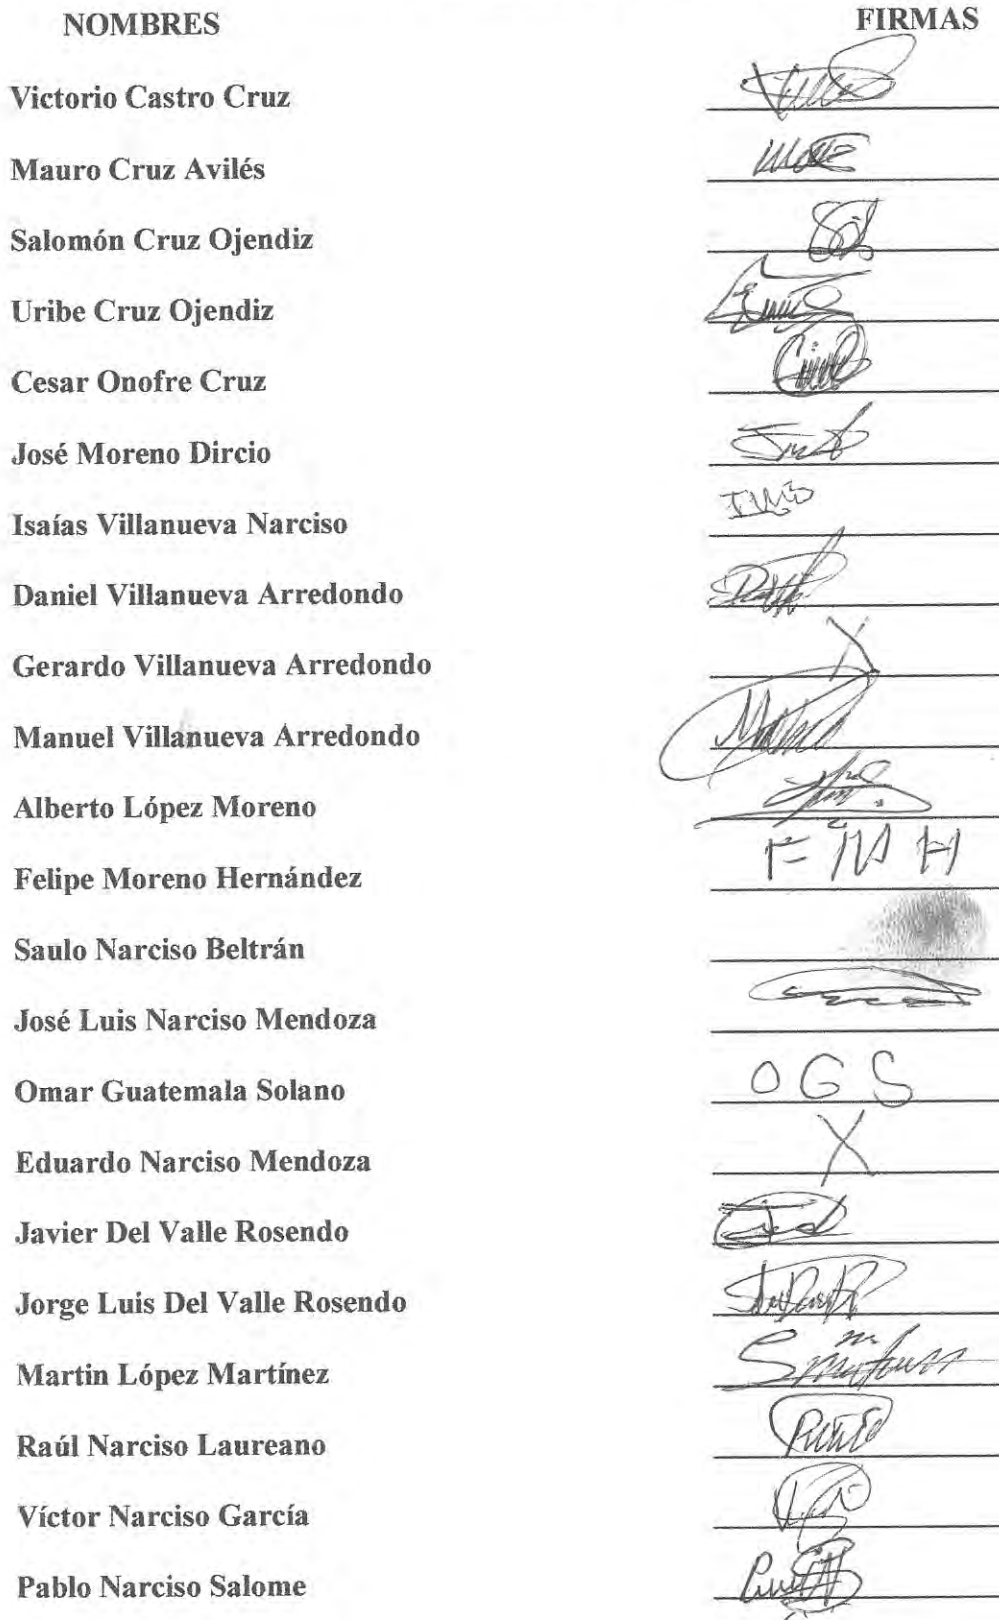 NOMBRES FIRMAS
Victorio Castro Cruz
Mauro Cruz Avilés
Salomón Cruz Ojendiz
Uribe Cruz Ojendiz
Cesar Onofre Cruz
José Moreno Dircio
Isaías Villanueva Narciso
Daniel Villanueva Arredondo
Gerardo Villanueva Arredondo X
Manuel Villanueva Arredondo
Alberto López Moreno
Felipe Moreno Hernández F M H
Saulo Narciso Beltrán
José Luis Narciso Mendoza
Omar Guatemala Solano O G S
Eduardo Narciso Mendoza X
Javier Del Valle Rosendo
Jorge Luis Del Valle Rosendo
Martin López Martínez
Raúl Narciso Laureano
Víctor Narciso García
Pablo Narciso Salome